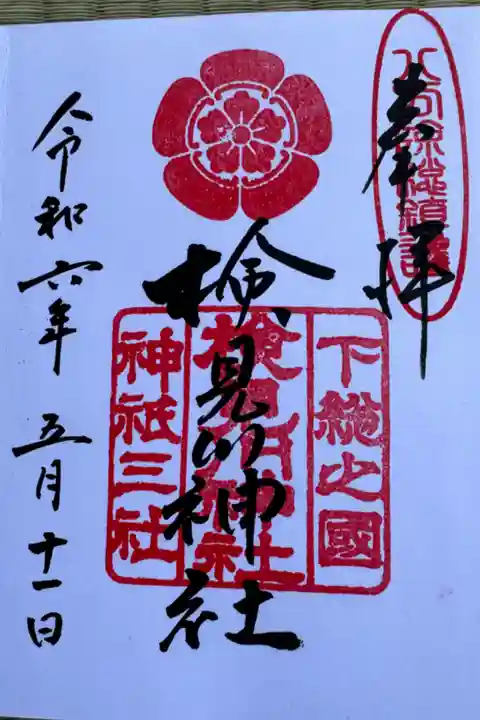 八方除総鎮護
奉拝
下総之國
検見川神社
神祇三社
検見川神社
令和六年 五月十一日